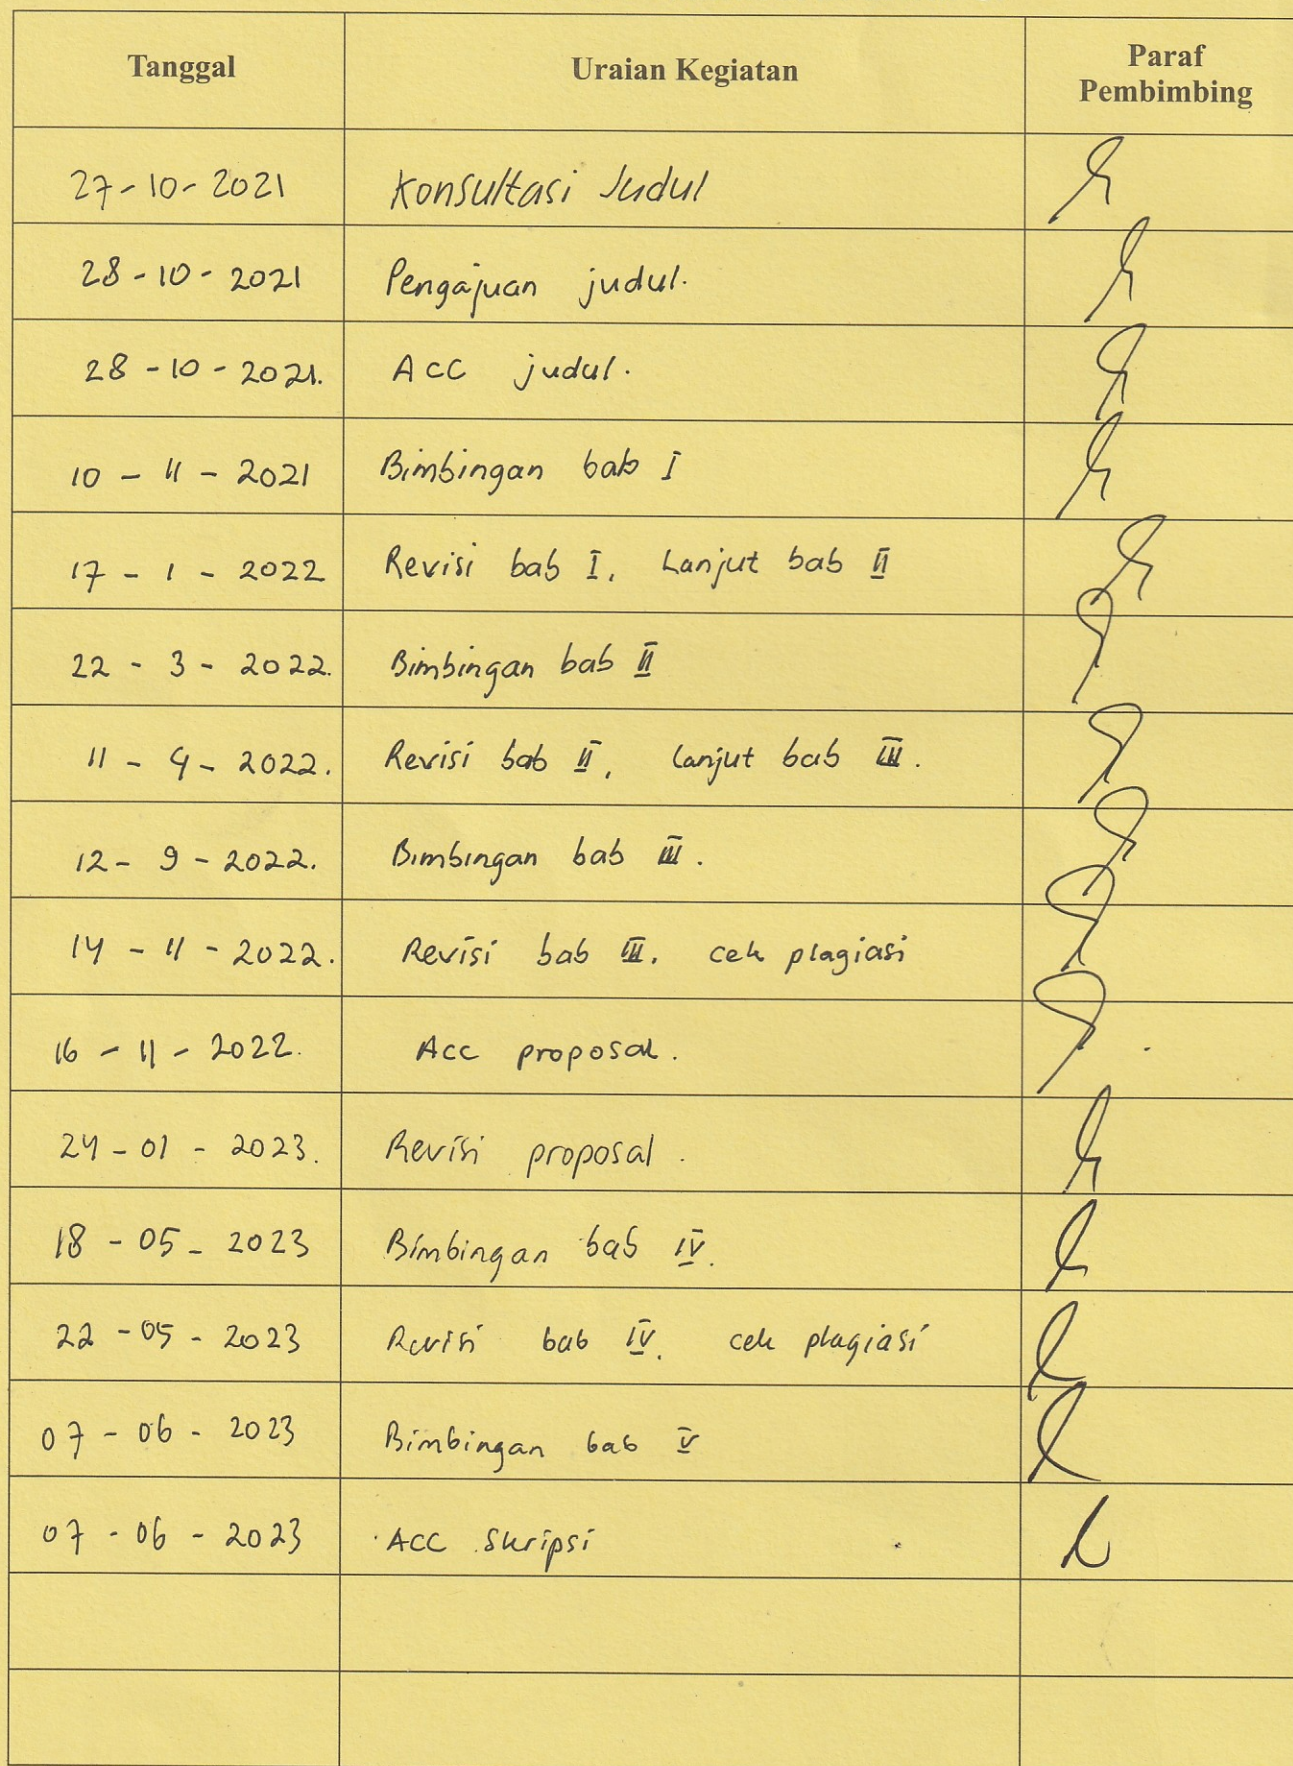 Tanggal Uraian Kegiatan Paraf Pembimbing
27-10-2021 Konsultasi Judul
28-10-2021 Pengajuan judul.
28-10-2021. Acc judul.
10-11-2021 Bimbingan bab I
17-1-2022 Revisi bab I, Lanjut bab II
22-3-2022. Bimbingan bab II
11-4-2022. Revisi bab II, lanjut bab III.
12-9-2022. Bimbingan bab III.
14-11-2022. Revisi bab III. cek plagiasi
16-11-2022. Acc proposal.
24-01-2023. Revisi proposal.
18-05-2023 Bimbingan bab IV.
22-05-2023 Revisi bab IV. cek plagiasi
07-06-2023 Bimbingan bab V
07-06-2023 ACC Skripsi